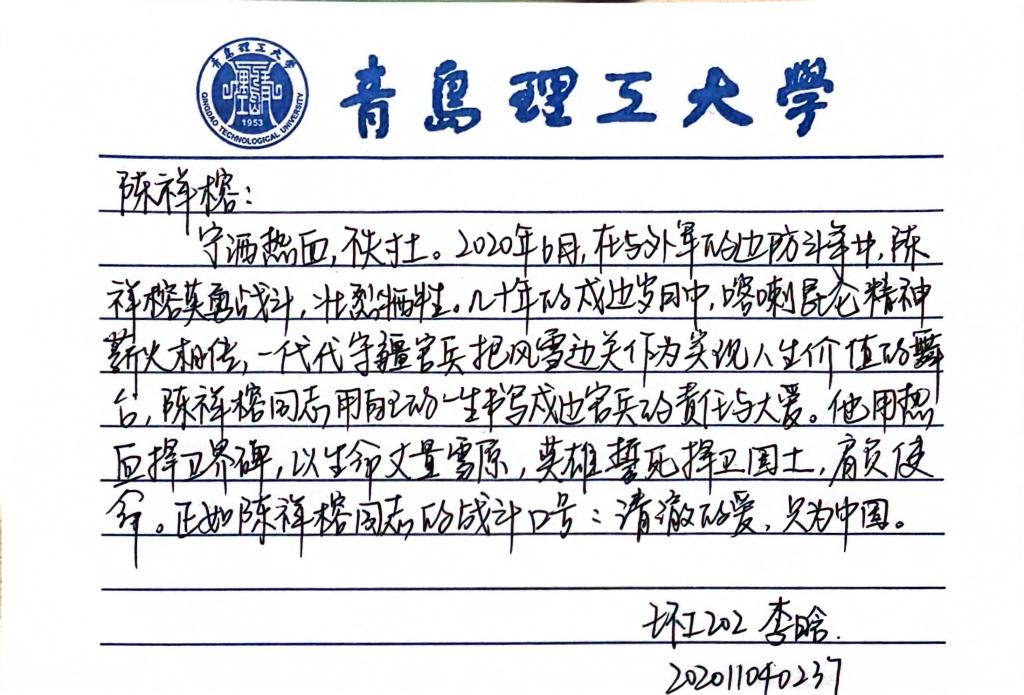 青島理工大学
QINGDAO TECHNOLOGICAL UNIVERSITY
1953
青島理工大學
陈祥榕：
宁洒热血，不失寸土。2020年6月，在与外军的边防斗争中，陈
祥榕英勇战斗，壮烈牺牲。几十年的戍边岁月中，喀喇昆仑精神
薪火相传，一代代守疆官兵把风雪边关作为实现人生价值的舞
台，陈祥榕同志用自己的一生书写戍边官兵的责任与大爱。他用热
血捍卫界碑，以生命丈量雪原，英雄誓死捍卫国土，肩负使
命。正如陈祥榕同志的战斗口号：清澈的爱，只为中国。
环工202 李晗.
202011040237